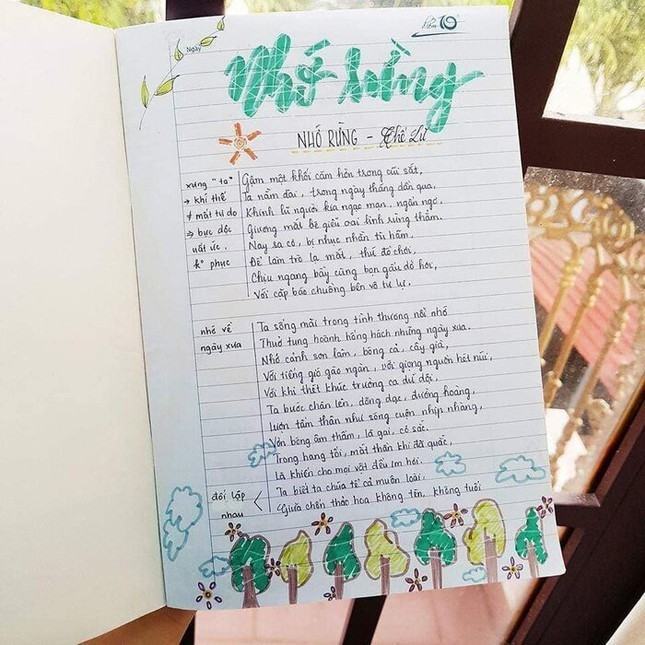 Ngày
Nhớ rừng
NHỚ RỪNG - Thế Lữ
xưng "ta"
→ khí thế
≠ mất tự do
⇒ bực dọc
uất ức,
k° phục
Gậm một khối căm hờn trong cũi sắt,
Ta nằm dài, trong ngày tháng dần qua,
Khinh lũ người kia ngạo mạn, ngẩn ngơ,
Giương mắt bé giễu oai linh rừng thẳm.
Nay sa cơ, bị nhục nhằn tù hãm,
Để làm trò lạ mắt, thứ đồ chơi,
Chịu ngang bầy cùng bọn gấu dở hơi,
Với cặp báo chuồng bên vô tư lự.
nhớ về
ngày xưa
Ta sống mãi trong tình thương nỗi nhớ
Thuở tung hoành hống hách những ngày xưa.
Nhớ cảnh sơn lâm, bóng cả, cây già,
Với tiếng gió gào ngàn, với giọng nguồn hét núi,
Với khi thét khúc trường ca dữ dội,
Ta bước chân lên, dõng dạc, đường hoàng,
Lượn tấm thân như sóng cuộn nhịp nhàng,
Vờn bóng âm thầm, lá gai, cỏ sắc.
Trong hang tối, mắt thần khi đã quắc,
Là khiến cho mọi vật đều im hơi.
đối lập
nhau
Ta biết ta chúa tể cả muôn loài,
Giữa chốn thảo hoa không tên, không tuổi